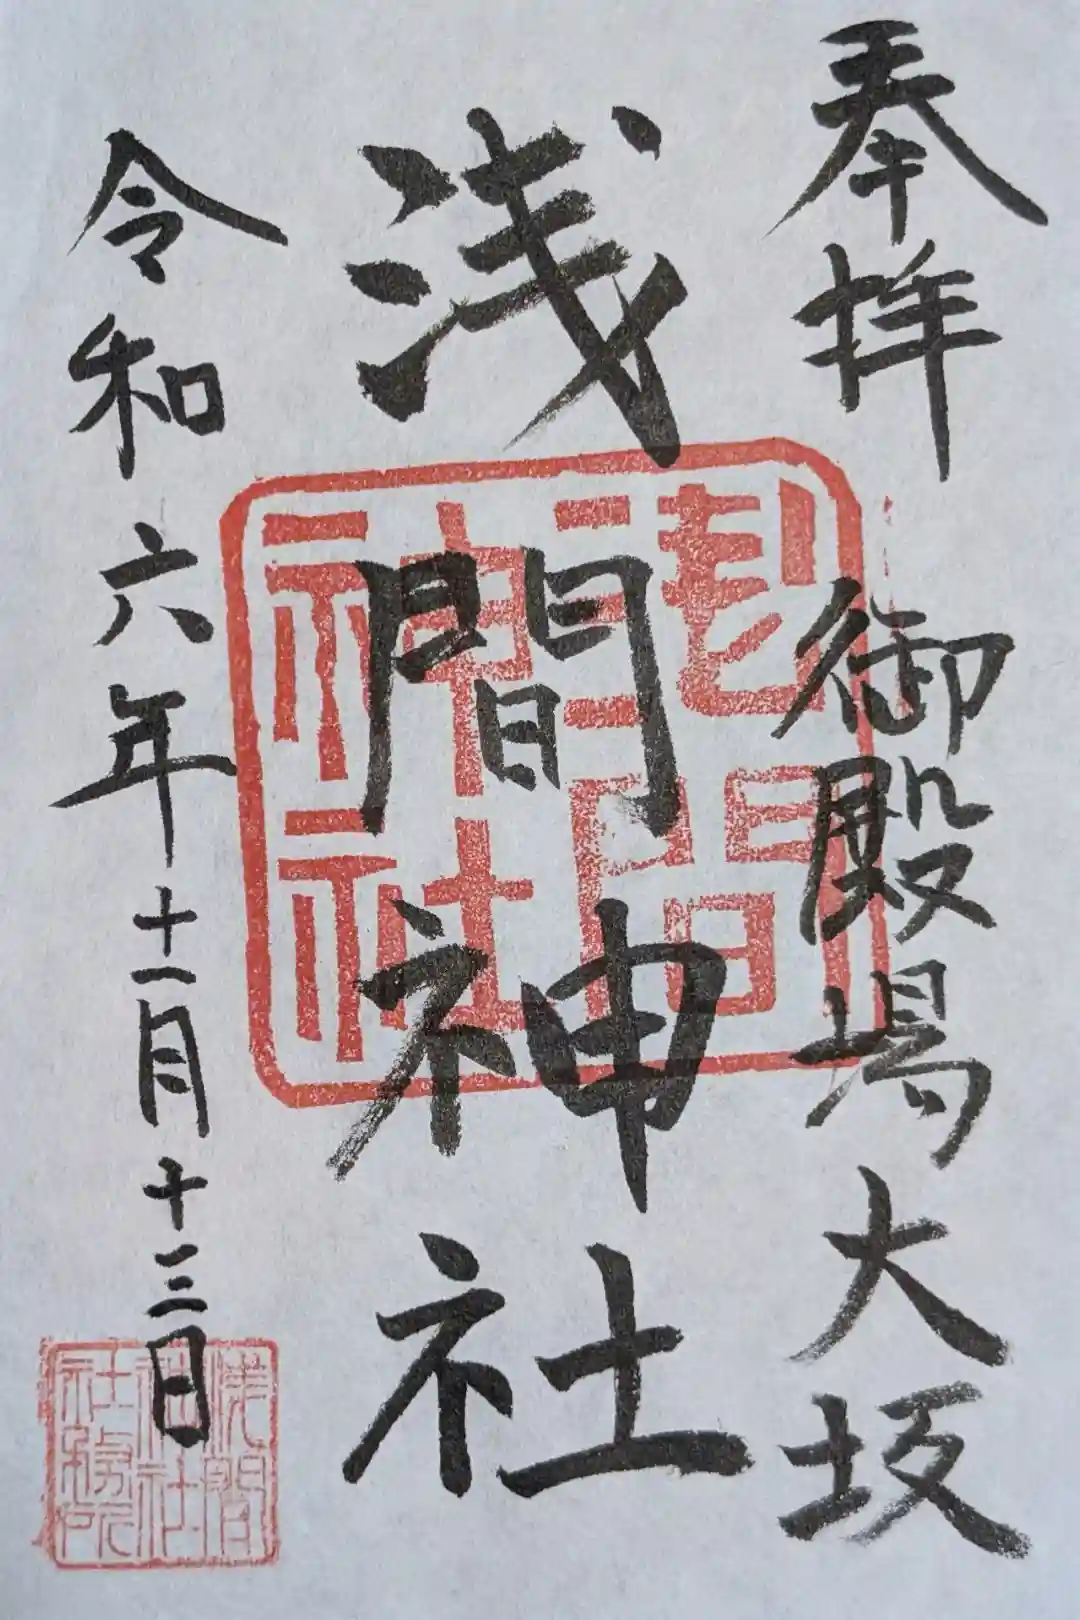 奉拝　御殿場大坂
浅間神社
令和六年十一月十三日
浅間
神社
浅間
神社
社務所